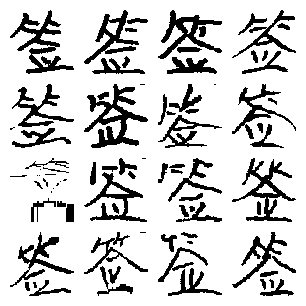 签签签签
签签签签
签签签签
签签签签